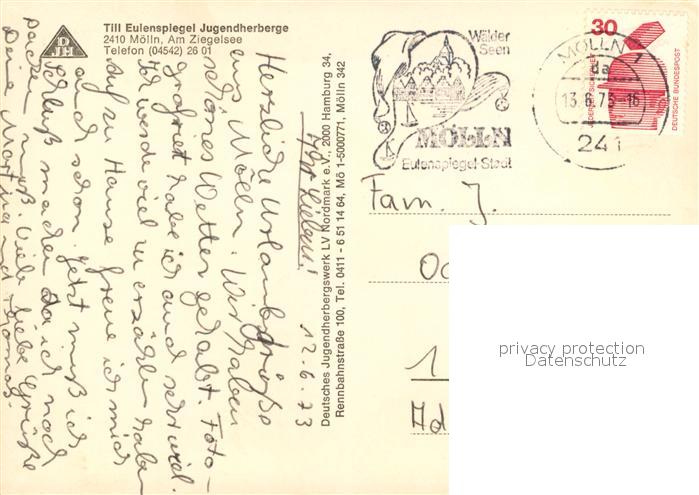 Till Eulenspiegel Jugendherberge
2410 Mölln, Am Ziegelsee
Telefon (04542) 26 01
D
JH
12.6.73
Ihr Lieben!
Herzliche Urlaubsgrüße
aus Mölln. Wir haben
schönes Wetter gehabt. Foto-
grafiert habe ich auch sehr viel.
Ich werde viel zu erzählen haben
Auf zu Hause freue ich mich
auch schon. Jetzt muß ich
Schluß machen da ich noch
packen muß. Viele liebe Grüße
Deine Martina und Thomas.
Deutsches Jugendherbergswerk LV Nordmark e.V., 2000 Hamburg 34,
Rennbahnstraße 100, Tel. 0411 - 6 51 14 64, Mö 1-5000771, Mölln 342
Wälder
Seen
MÖLLN
Eulenspiegel-Stadt
MÖLLN
da
13.6.73-18
241
30
DEUTSCHE BUNDESPOST
Fam. J.
Oc
1
Ad
privacy protection
Datenschutz